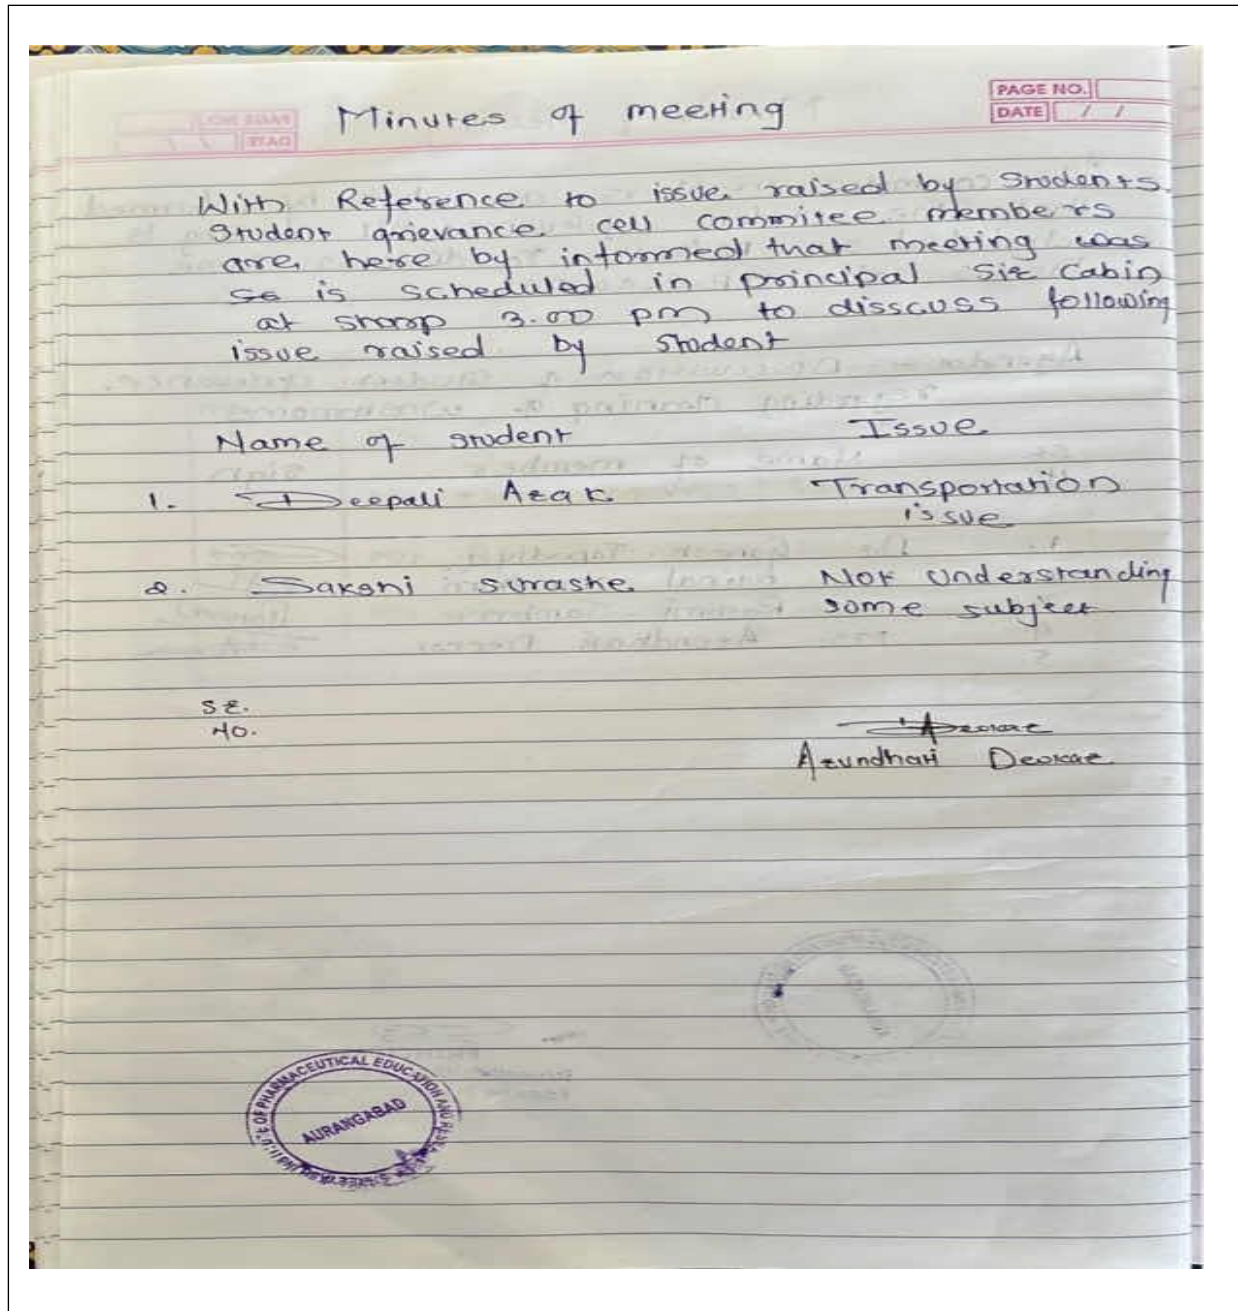 PAGE NO.
DATE / /
Minutes of meeting
With Reference to issue raised by Students.
Student grievance cell commitee members
are here by informed that meeting was
is scheduled in principal Sir Cabin
at sharp 3.00 pm to disscuss following
issue raised by Student
Name of student Issue
1. Deepali Azak Transportation
issue
2. Sakshi Surashe Not Understanding
some subject
SR.
NO.
Arundhati Deokar
OF PHARMACEUTICAL EDUCATION AND
AURANGABAD